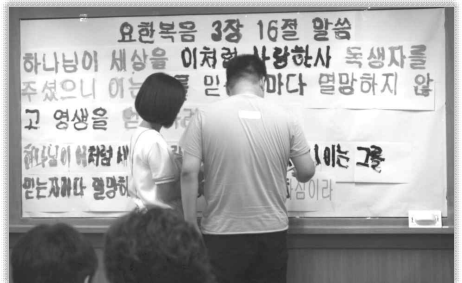 요한복음 3장 16절 말씀
하나님이 세상을 이처럼 사랑하사 독생자를
주셨으니 이는 를 믿 마다 멸망하지 않
고 영생을
하나님이 이처럼 세 이는 그를
믿는자마다 멸망하 하심이라